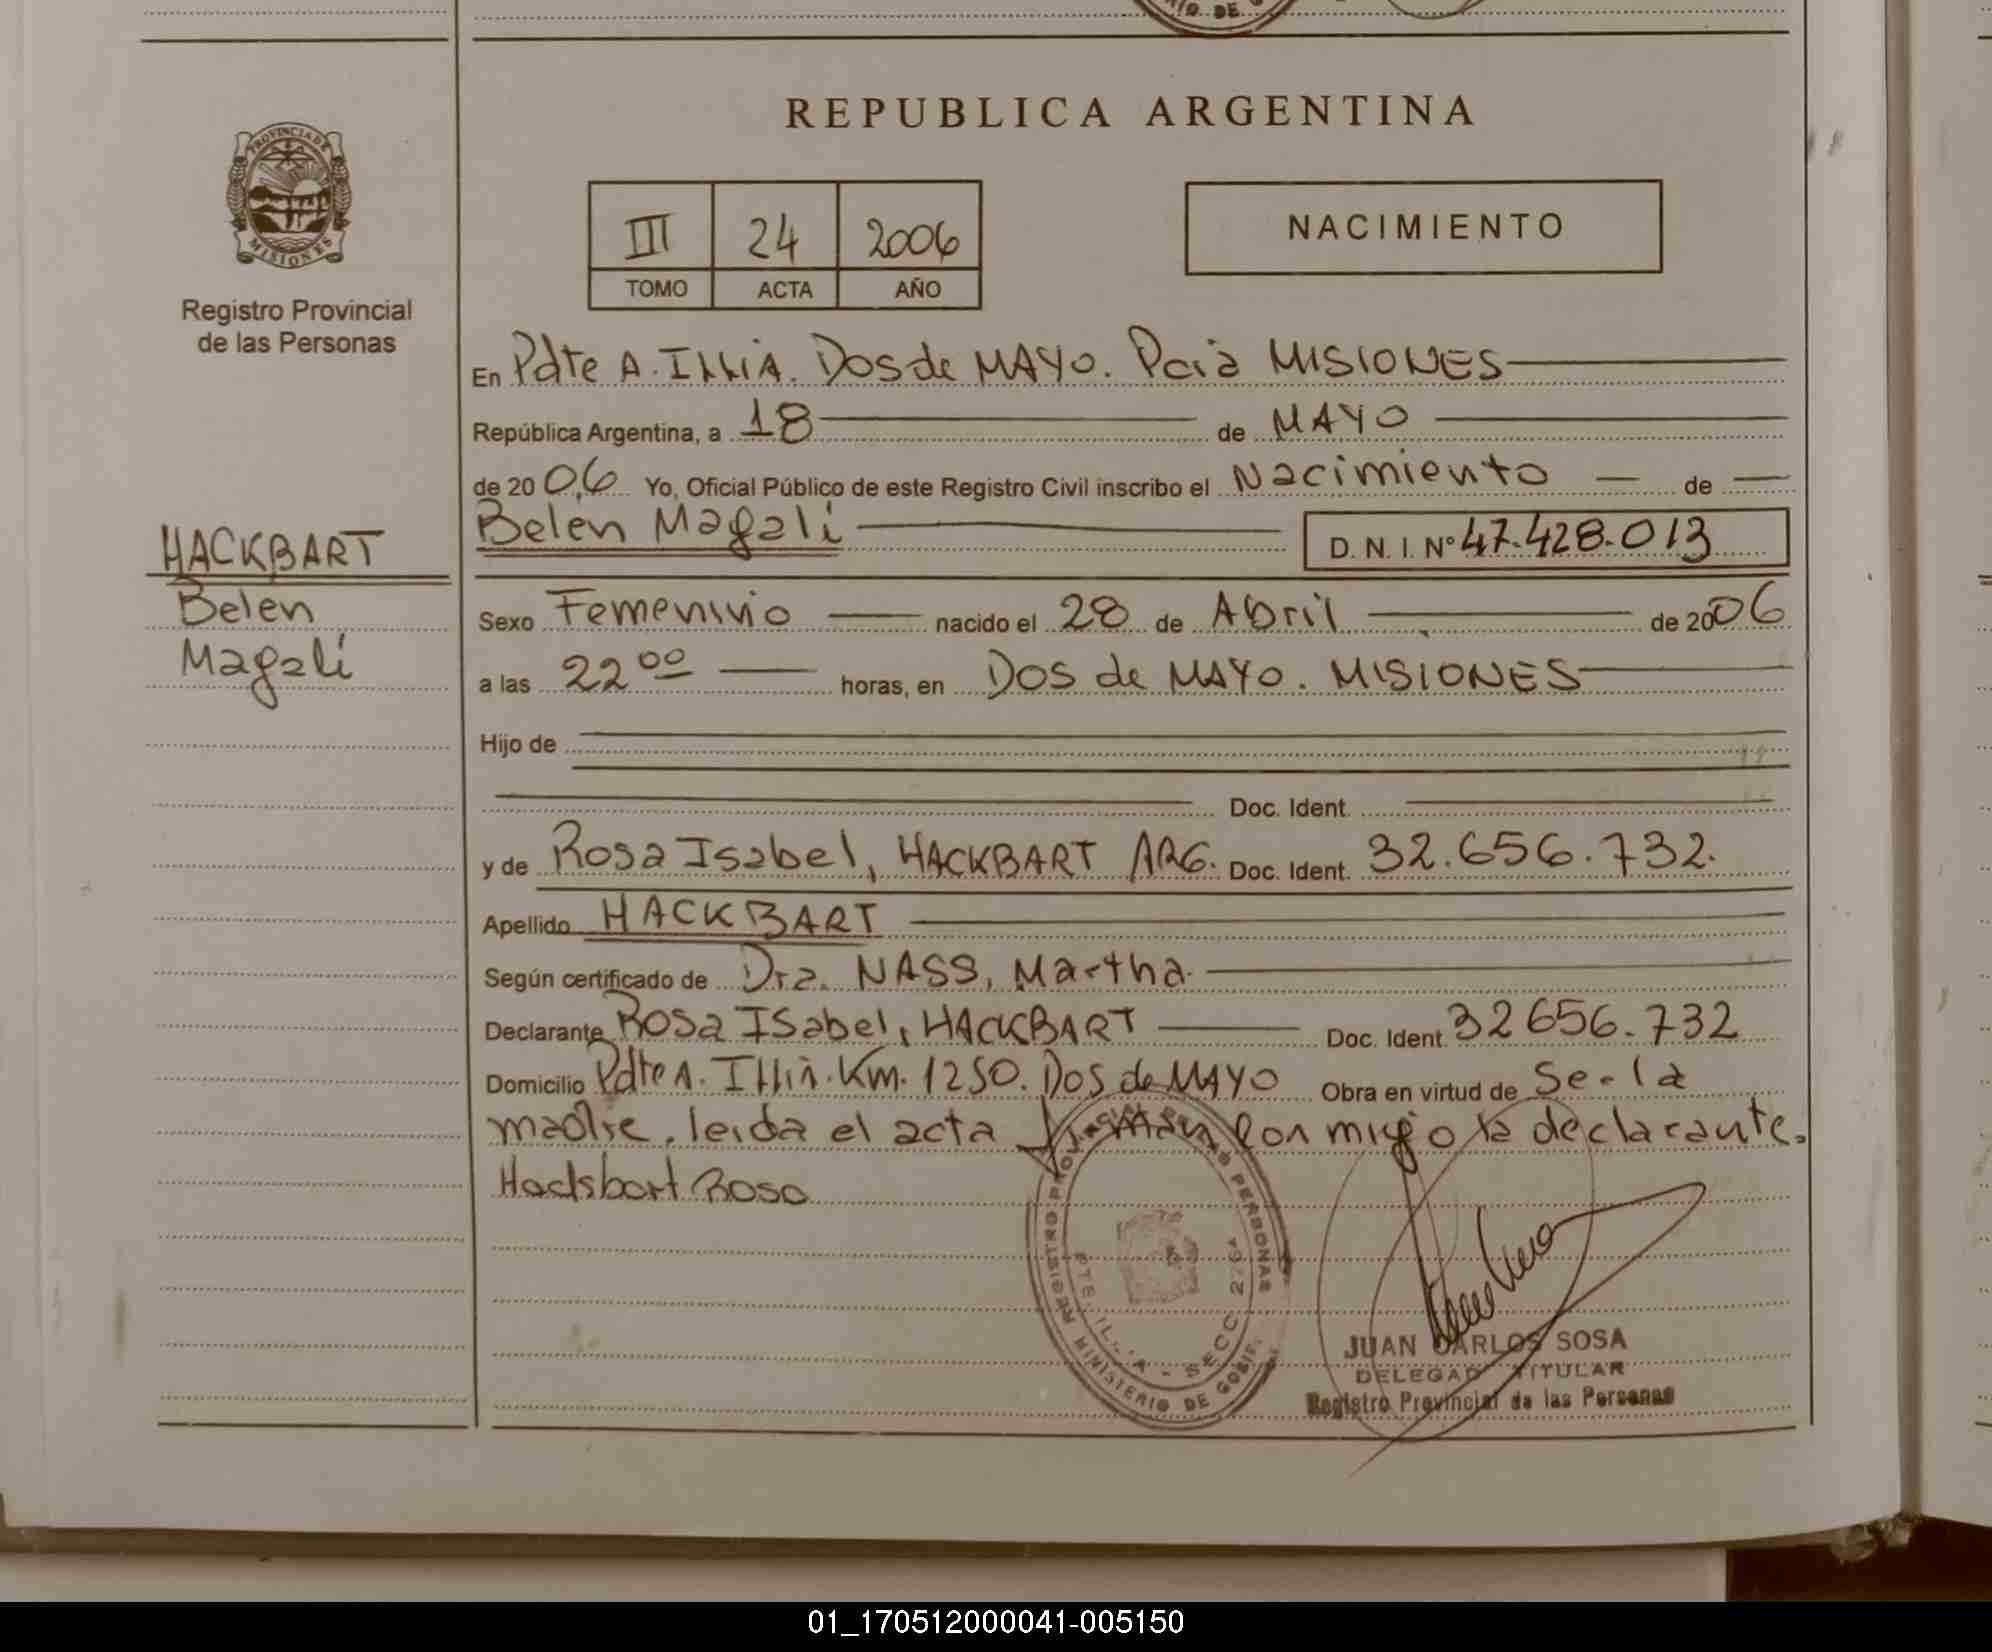 REPUBLICA ARGENTINA
PROVINCIA DE
MISIONES
Registro Provincial
de las Personas
III 24 2006
TOMO ACTA AÑO
NACIMIENTO
En Pdte A. Illia. Dos de MAYO. Pcia MISIONES
República Argentina, a 18 de MAYO
de 2006 Yo, Oficial Público de este Registro Civil inscribo el Nacimiento de
Belen Magali D. N. I. Nº 47.428.013
HACKBART
Belen
Magali
Sexo Femenino nacido el 28 de Abril de 2006
a las 22 00 horas, en DOS de MAYO. MISIONES
Hijo de
Doc. Ident.
y de Rosa Isabel, HACKBART ARG. Doc. Ident. 32.656.732.
Apellido HACKBART
Según certificado de Dra. NASS, Martha.
Declarante Rosa Isabel, HACKBART Doc. Ident. 32656.732
Domicilio Pdte A. Illia. Km. 1250. DOS de MAYO Obra en virtud de Ser la
madre. leida el acta firman conmigo la declarante.
Hackbart Rosa
REGISTRO PROVINCIAL DE LAS PERSONAS
MINISTERIO DE GOB
SECC 2764
JUAN CARLOS SOSA
DELEGADO TITULAR
Registro Provincial de las Personas
01_170512000041-005150